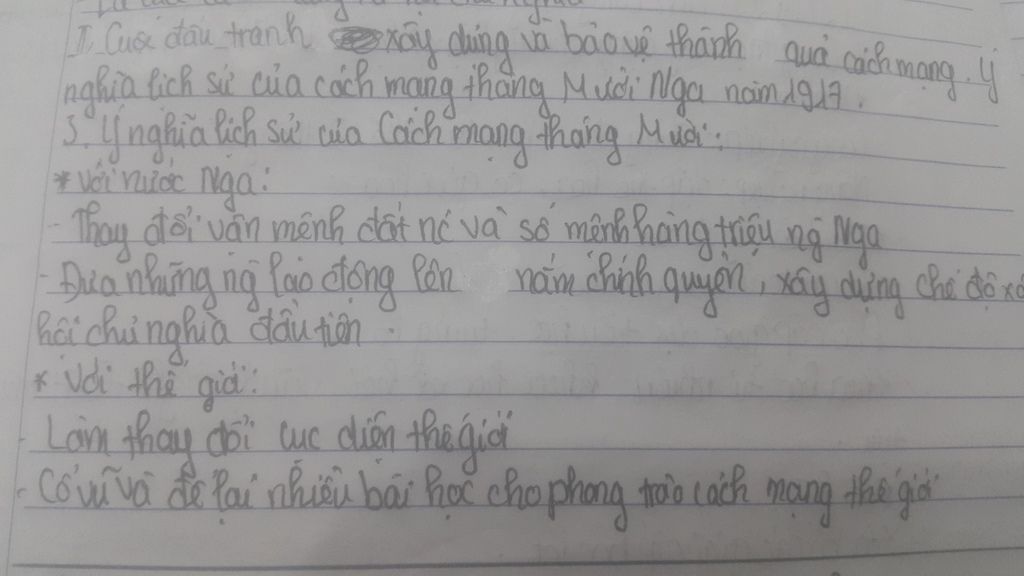 II, Cuộc đấu tranh xây dựng và bảo vệ thành quả cách mạng. Ý
nghĩa lịch sử của cách mạng tháng Mười Nga năm 1917.
3. Ý nghĩa lịch sử của Cách mạng tháng Mười:
* Với nước Nga:
- Thay đổi vận mệnh đất nc và số mệnh hàng triệu ng Nga
- Đưa những ng lao động lên nắm chính quyền, xây dựng chế độ xã
hội chủ nghĩa đầu tiên.
* Với thế giới:
- Làm thay đổi cục diện thế giới
- Cổ vũ và để lại nhiều bài học cho phong trào cách mạng thế giới